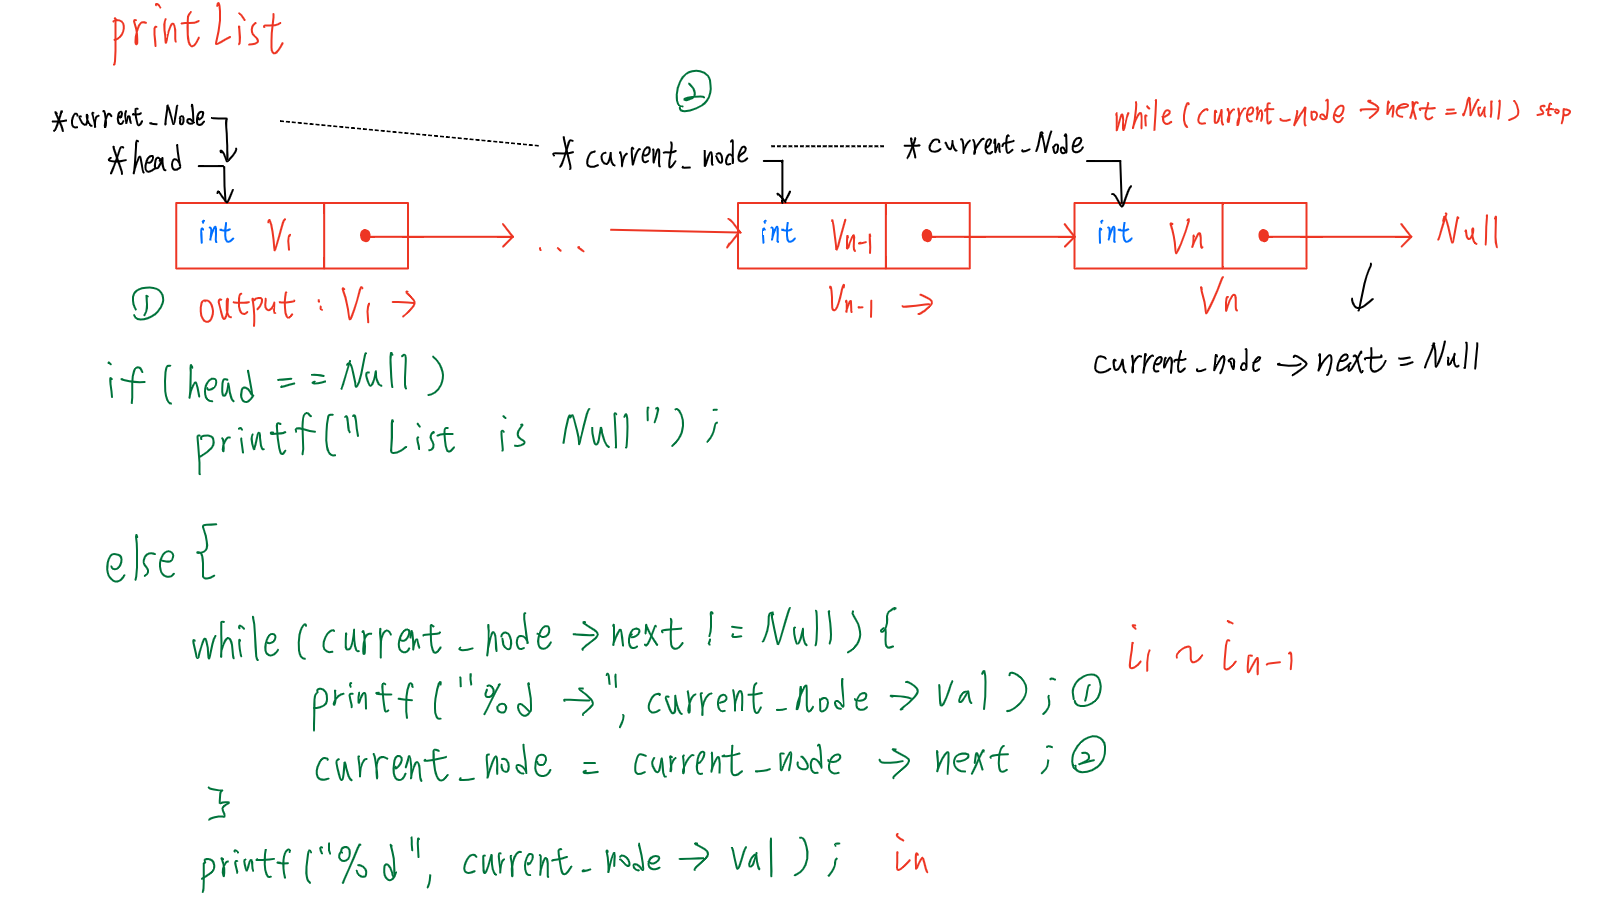 printList
②
*current_Node
*head
* current_node
* current_Node
while (current_node →next = Null) stop
int V1
...
int Vn-1
int Vn
Null
① output : V1 →
Vn-1 →
Vn
current_node → next = Null
if (head == Null)
printf(" List is Null") ;
else {
while (current_node → next != Null) {
i1 ~ in-1
printf ("%d →", current_node → val ) ; ①
current_node = current_node → next ; ②
}
printf("%d", current_node → val ) ; in